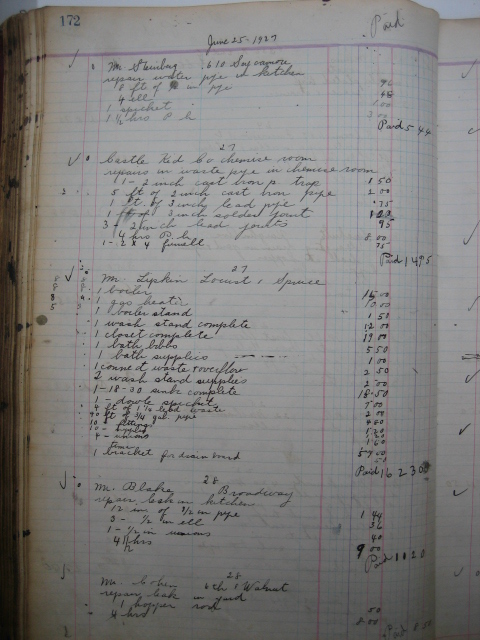 172
Paid
June 25 - 1927
Mr Steinburg 610 Sycamore
repair water pipe in kitchen
18 ft of in pipe 96
4 ell 48
1 spicket 1 00
1 1/2 hrs P. h 3 00
Paid 5 44
27
Castle Kid Co chemise room
repairs in waste pipe in chemise room
1 - 2 inch cast iron p trap 1 50
5 ft of 2 inch cast iron pipe 2 00
1 ft. of 3 inch lead pipe .75
1 3 inch solder joint
3 2 inch lead joints 95
4 hrs P. h 8 00
1 - 2 x 4 75
Paid 14 95
27
Mr. Lipkin Locust & Spruce
1 boiler 15 00
1 gas heater 10 00
1 boiler stand 1 50
1 wash stand complete 12 00
1 closet complete 19 00
1 bath bibbs 5 50
1 bath supplies 1 00
1 conect waste & overflow 2 50
2 wash stand supplies 2 00
1 - 18-30 sink complete 18.50
1 - spicket
4 ft of 1 1/2 lead waste 2 00
40 ft of 3/4 gal. pipe 4 80
10 - fittings
4 - unions
time
1 bracket for drain board
Paid 162 30
28
Mr. Blake Broadway
repair leak in kitchen
12 in of 1/2 in pipe 1 44
3 - 1/2 in ell 36
1 - 1/2 in unions 40
4 1/2 hrs 9 00
Paid 11 20
28
Mr. Cohen 6th & Walnut
repair leak in yard
1 hopper rod 50
4 hrs 8 00
Paid 8 50